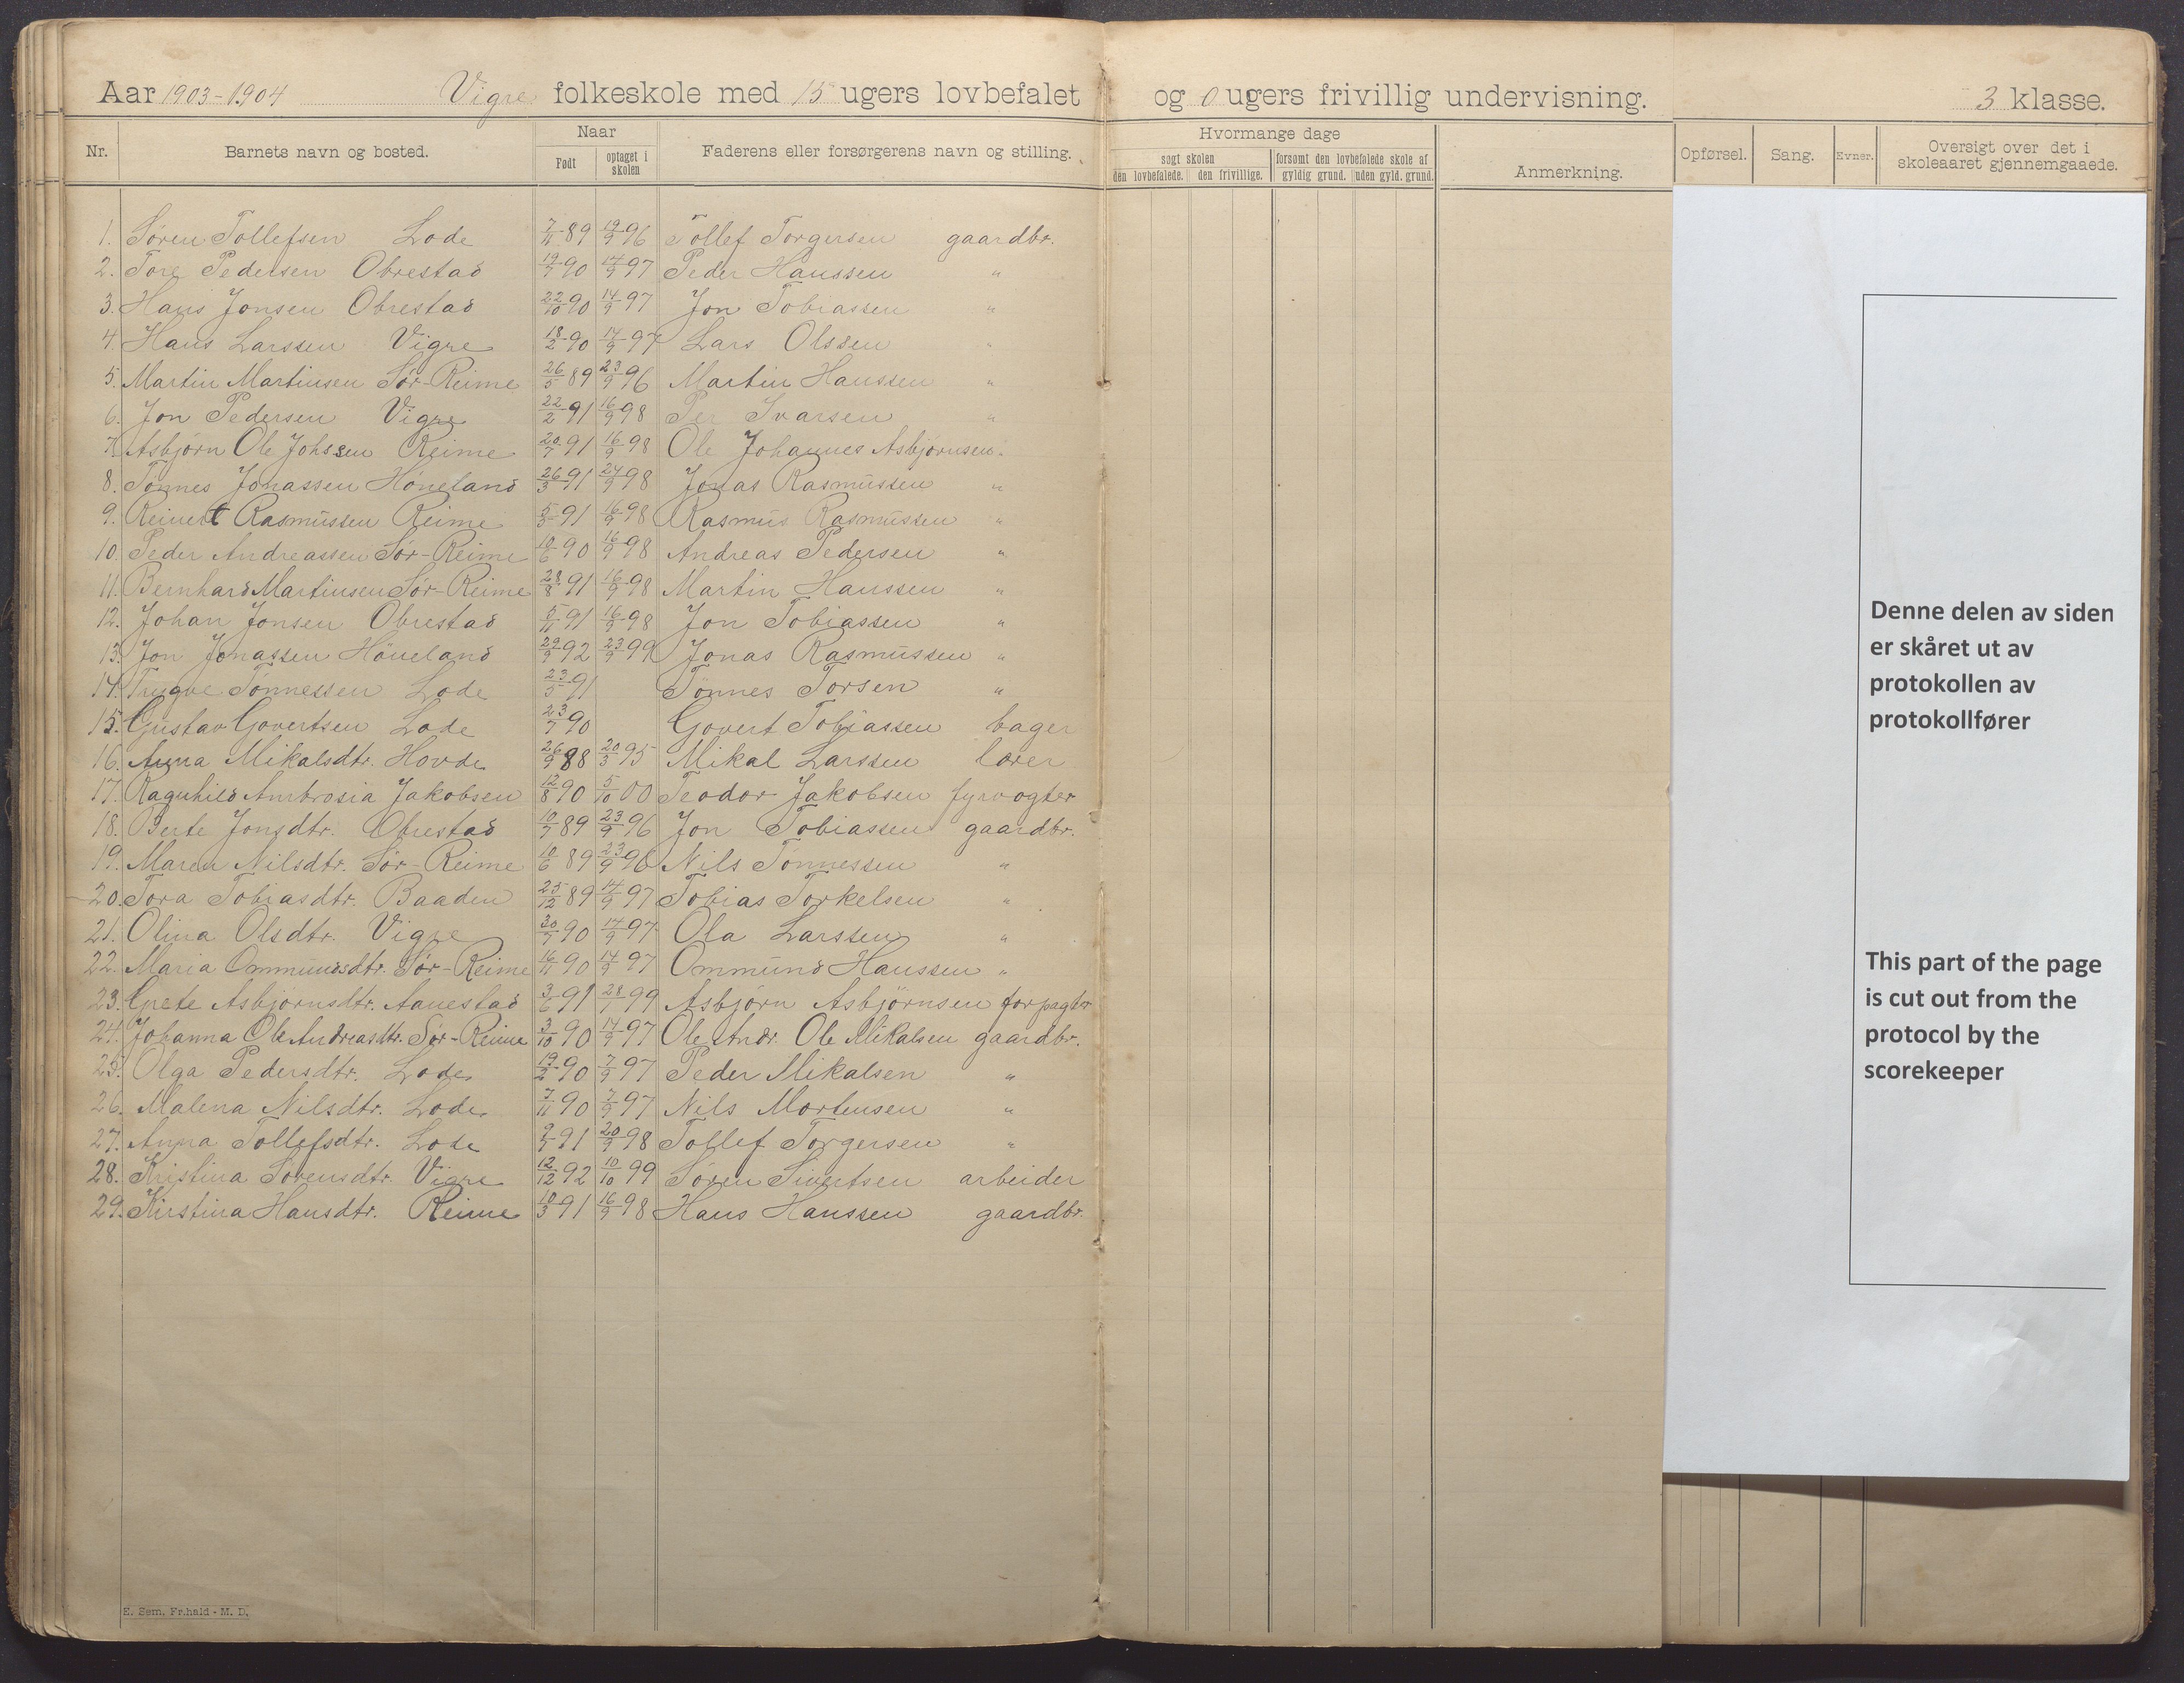 Aar 1903-1904 Vigre folkeskole med 15 ugers lovbefalet og 0 ugers frivillig undervisning. 3 klasse.
Nr. Barnets navn og bosted. Naar Født optaget i skolen Faderens eller forsørgerens navn og stilling. Hvormange dage søgt skolen den lovbefalede. den frivillige. forsømt den lovbefalede skole af gyldig grund. uden gyld. grund. Anmerkning. Opførsel. Sang. Evner. Oversigt over det i skoleaaret gjennemgaaede.
1. Søren Tollefsen Lode 7/11 89 19/9 96 Tollef Torgersen gaardbr.
2. Tore Pedersen Obrestad 19/7 90 14/9 97 Peder Hanssen "
3. Hans Jonsen Obrestad 22/10 90 14/9 97 Jon Tobiassen "
4. Hans Larssen Vigre 18/2 90 14/9 97 Lars Olssen "
5. Martin Martinsen Sør-Reime 26/5 89 23/9 96 Martin Hanssen "
6. Jon Pedersen Vigre 22/2 91 16/9 98 Per Ivarsen "
7. Asbjørn Ole Johssen Reime 20/7 91 16/9 98 Ole Johannes Asbjørnsen "
8. Tønnes Jonassen Høneland 26/3 91 24/9 98 Jonas Rasmussen "
9. Reinert Rasmussen Reime 5/5 91 16/9 98 Rasmus Rasmussen "
10. Peder Andreassen Sør-Reime 10/6 90 16/9 98 Andreas Pedersen "
11. Bernhard Martinsen Sør-Reime 28/8 91 16/9 98 Martin Hanssen "
12. Johan Jonsen Obrestad 5/11 91 16/9 98 Jon Tobiassen "
13. Jon Jonassen Höneland 29/9 92 23/9 99 Jonas Rasmussen "
14. Trygve Tønnessen Lode 23/5 91 Tønnes Torsen "
15. Gustav Govertsen Lode 23/7 90 Govert Tobiassen bager
16. Anna Mikalsdtr. Hovde 26/9 88 20/3 95 Mikal Larssen lærer
17. Ragnhild Ambrosia Jakobsen 12/8 90 5/10 00 Teodor Jakobsen fyrvogter
18. Berte Jonsdtr. Obrestad 10/7 89 23/9 96 Jon Tobiassen gaardbr.
19. Maren Nilsdtr. Sør-Reime 10/6 89 23/9 96 Nils Tønnessen "
20. Tora Tobiasdtr. Baaden 25/12 89 14/9 97 Tobias Torkelsen "
21. Olina Olsdtr. Vigre 30/7 90 14/9 97 Ola Larssen "
22. Maria Ommundsdtr. Sør-Reime 16/11 90 14/9 97 Ommund Hanssen "
23. Grete Asbjørnsdtr. Aanestad 3/6 91 28/1 99 Asbjørn Asbjörnsen forpagter
24. Johanna Ole Andreasdtr. Sør-Reime 3/10 90 14/9 97 Ole Andr. Ole Mikalsen gaardbr.
25. Olga Pedersdtr. Lode 19/2 90 7/9 97 Peder Mikalsen "
26. Malena Nilsdtr. Lode 7/11 90 7/9 97 Nils Mortensen "
27. Anna Tollefsdtr. Lode 9/7 91 20/9 98 Tollef Torgersen "
28. Kristina Sørensdtr. Vigre 12/12 92 10/10 99 Søren Sivertsen arbeider
29. Kirstina Hansdtr. Reime 10/3 91 16/9 98 Hans Hanssen gaardbr.
E. Sem, Fr.hald - M. D.
Denne delen av siden
er skåret ut av
protokollen av
protokollfører
This part of the page
is cut out from the
protocol by the
scorekeeper